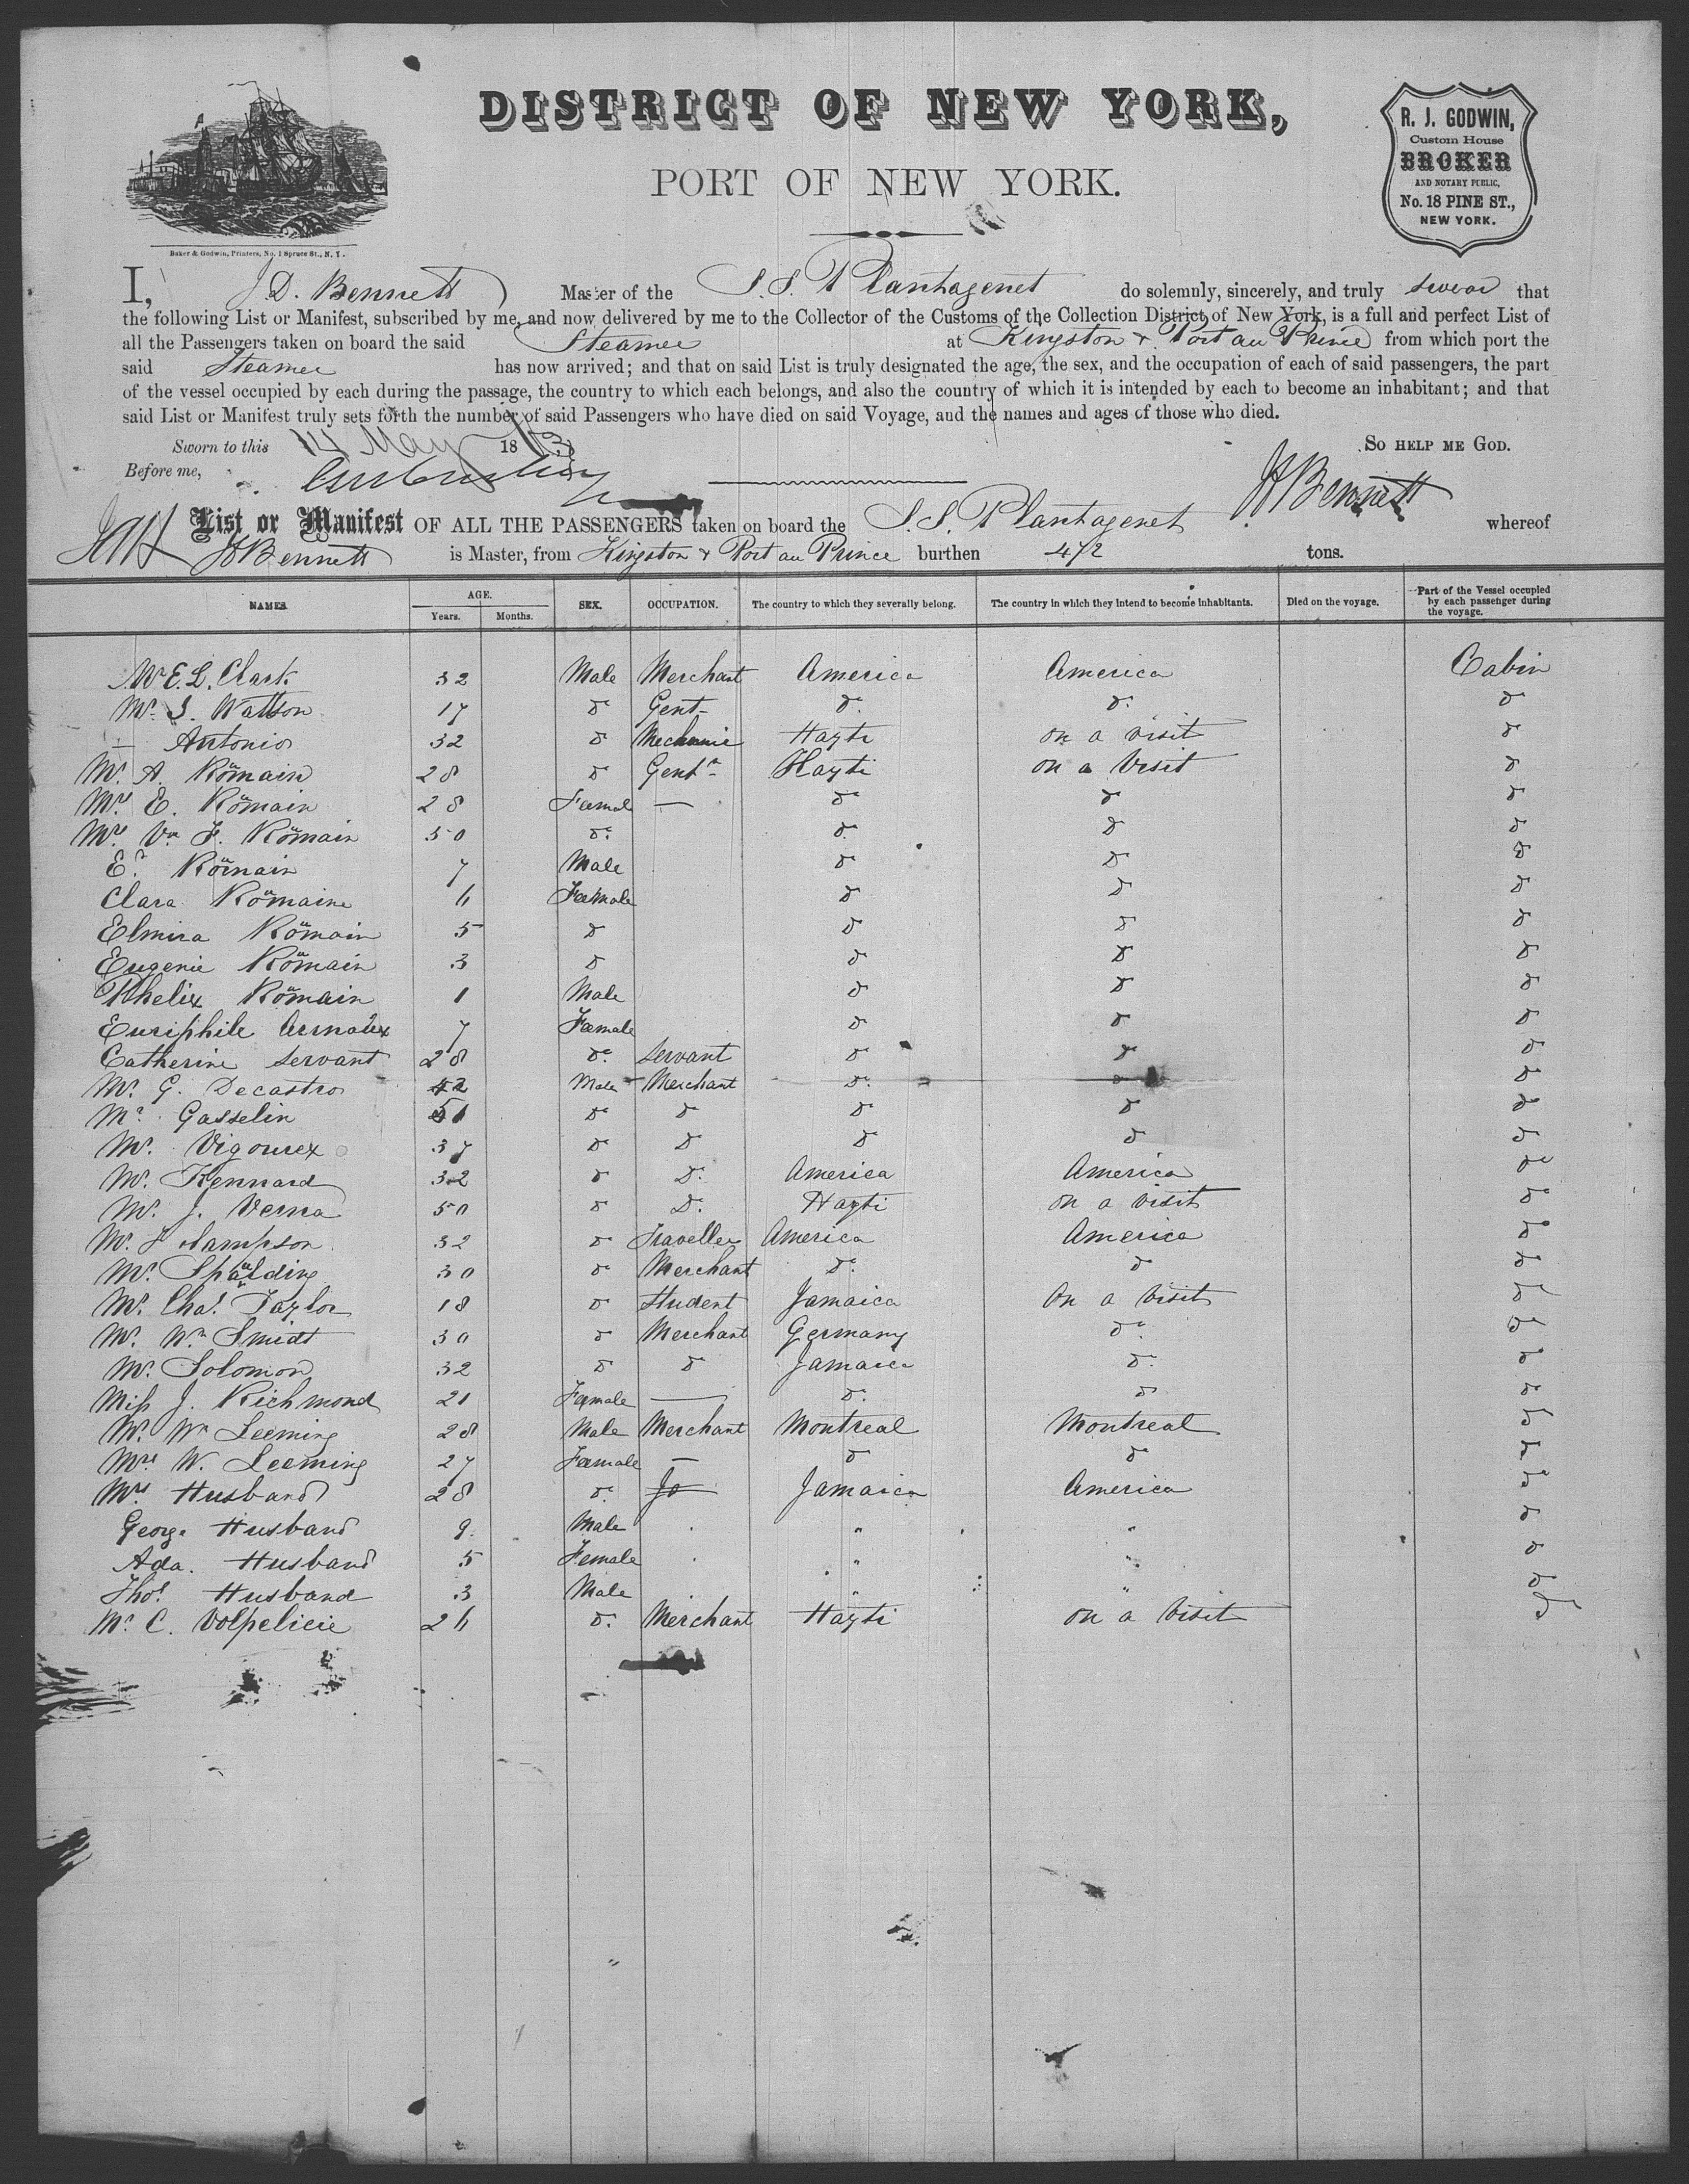 DISTRICT OF NEW YORK,
PORT OF NEW YORK.
R. J. GODWIN,
Custom House
BROKER
AND NOTARY PUBLIC,
No. 18 PINE ST.,
NEW YORK.
Baker & Godwin, Printers, No. 1 Spruce St., N. Y.
I, J. D. Bennett Master of the S.S. Plantagenet do solemnly, sincerely, and truly swear that
the following List or Manifest, subscribed by me, and now delivered by me to the Collector of the Customs of the Collection District of New York, is a full and perfect List of
all the Passengers taken on board the said Steamer at Kingston & Port au Prince from which port the
said Steamer has now arrived; and that on said List is truly designated the age, the sex, and the occupation of each of said passengers, the part
of the vessel occupied by each during the passage, the country to which each belongs, and also the country of which it is intended by each to become an inhabitant; and that
said List or Manifest truly sets forth the number of said Passengers who have died on said Voyage, and the names and ages of those who died.
Sworn to this 14 May 1873 SO HELP ME GOD.
Before me,
JD Bennett
List or Manifest OF ALL THE PASSENGERS taken on board the S.S. Plantagenet whereof
JD Bennett is Master, from Kingston & Port au Prince burthen 472 tons.
NAMES. AGE. Years. Months. SEX. OCCUPATION. The country to which they severally belong. The country in which they intend to become inhabitants. Died on the voyage. Part of the Vessel occupied by each passenger during the voyage.
Mr E. L. Clark 32 Male Merchant America America Cabin
Mr. S. Watson 17 do Gent do. do. do
— Antonio 32 do Mechanic Hayti on a visit do
Mr. A. Römain 28 do Gentn Hayti on a Visit do
Mrs E. Römain 28 Femal — do do do
Mrs Vn F. Römain 50 do. do do do
Ed. Römain 7 Male do do do
Clara Römaine 6 Female do do do
Elmira Römain 5 do do do do
Eugenie Römain 3 do do do do
Phelix Römain 1 Male do do do
Euriphile 7 Female do do do
Catherine Servant 28 do. Servant do do do
Mr. G. Decastro 42 Male Merchant do. do do
Mr Gasselin 51 do do do do do
Mr. Vigourex 37 do do do do do
Mr. Kennard 32 do Do. America America do
Mr. J. Verna 50 do Do. Hayti on a visit do
Mr. J Sampson 32 do Traveller America America do
Mr. Spalding 30 do Merchant Do. do do
Mr. Chas. Taylor 18 do Student Jamaica On a visit do
Mr. Wm Smidt 30 do Merchant Germany do. do
Mr. Solomon 32 do do Jamaica do. do
Miss J. Richmond 21 Female — do. do do
Mr. Wm Leeming 28 Male Merchant Montreal Montreal do
Mrs W. Leeming 27 Female — do do do
Mrs Husband 28 do. Jamaica America do
George Husband 9. Male " " do
Ada. Husband 5 Female " " do
Thos Husband 3 Male " " do
Mr C. Volpelicie 26 do. Merchant Hayti on a Visit do